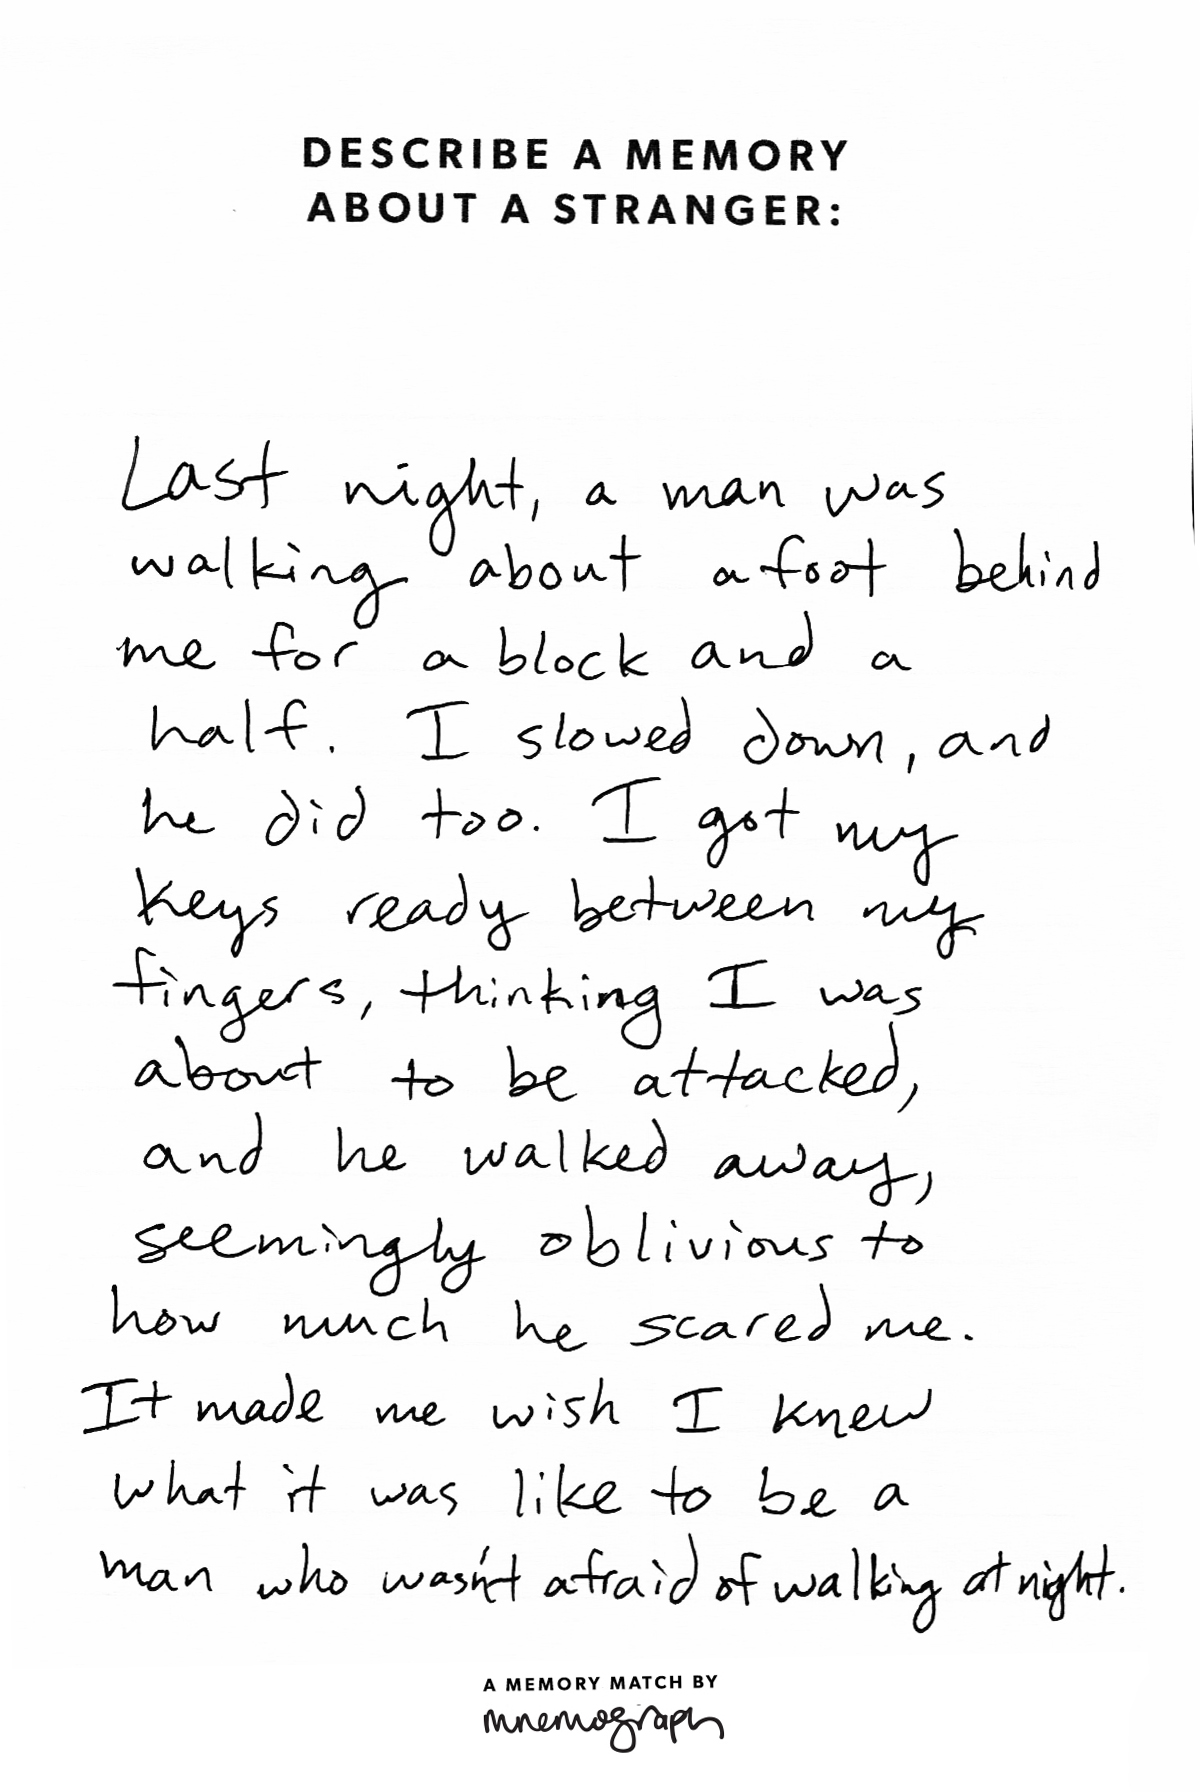 DESCRIBE A MEMORY
ABOUT A STRANGER:
Last night, a man was
walking about a foot behind
me for a block and a
half. I slowed down, and
he did too. I got my
keys ready between my
fingers, thinking I was
about to be attacked,
and he walked away,
seemingly oblivious to
how much he scared me.
It made me wish I knew
what it was like to be a
man who wasn't afraid of walking at night.
A MEMORY MATCH BY
mnemograph